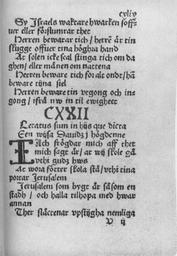 cxliv
Sy Israels waktare hwarken soffr
uer eller förstumrar thet
Herren bewarar tich / herrē är tin
skugge offuer tina höghra hand
At solen icke scal stinga tich om da
ghen / eller månen om natten
Herren beware tich for alt ondt / hā
beware tijna siel
Herren beware tin vtgong och ine
gong / ifrå nw in til ewighett
CXXII
Letatus sum in hijs que dicta
Een wijsa Dauidz j högdenne
IAch frögdar mich aff thet
mich sagt är / at wij skole gå
vthi gudz hws
At wora fötter skola stå / vthi tina
portar Jerusalem
Jerusalem som bygt är såsom en
stadh / och skall tilhopa med hwar
annan
Ther slächtenar vpstijgha nemliga
V ij